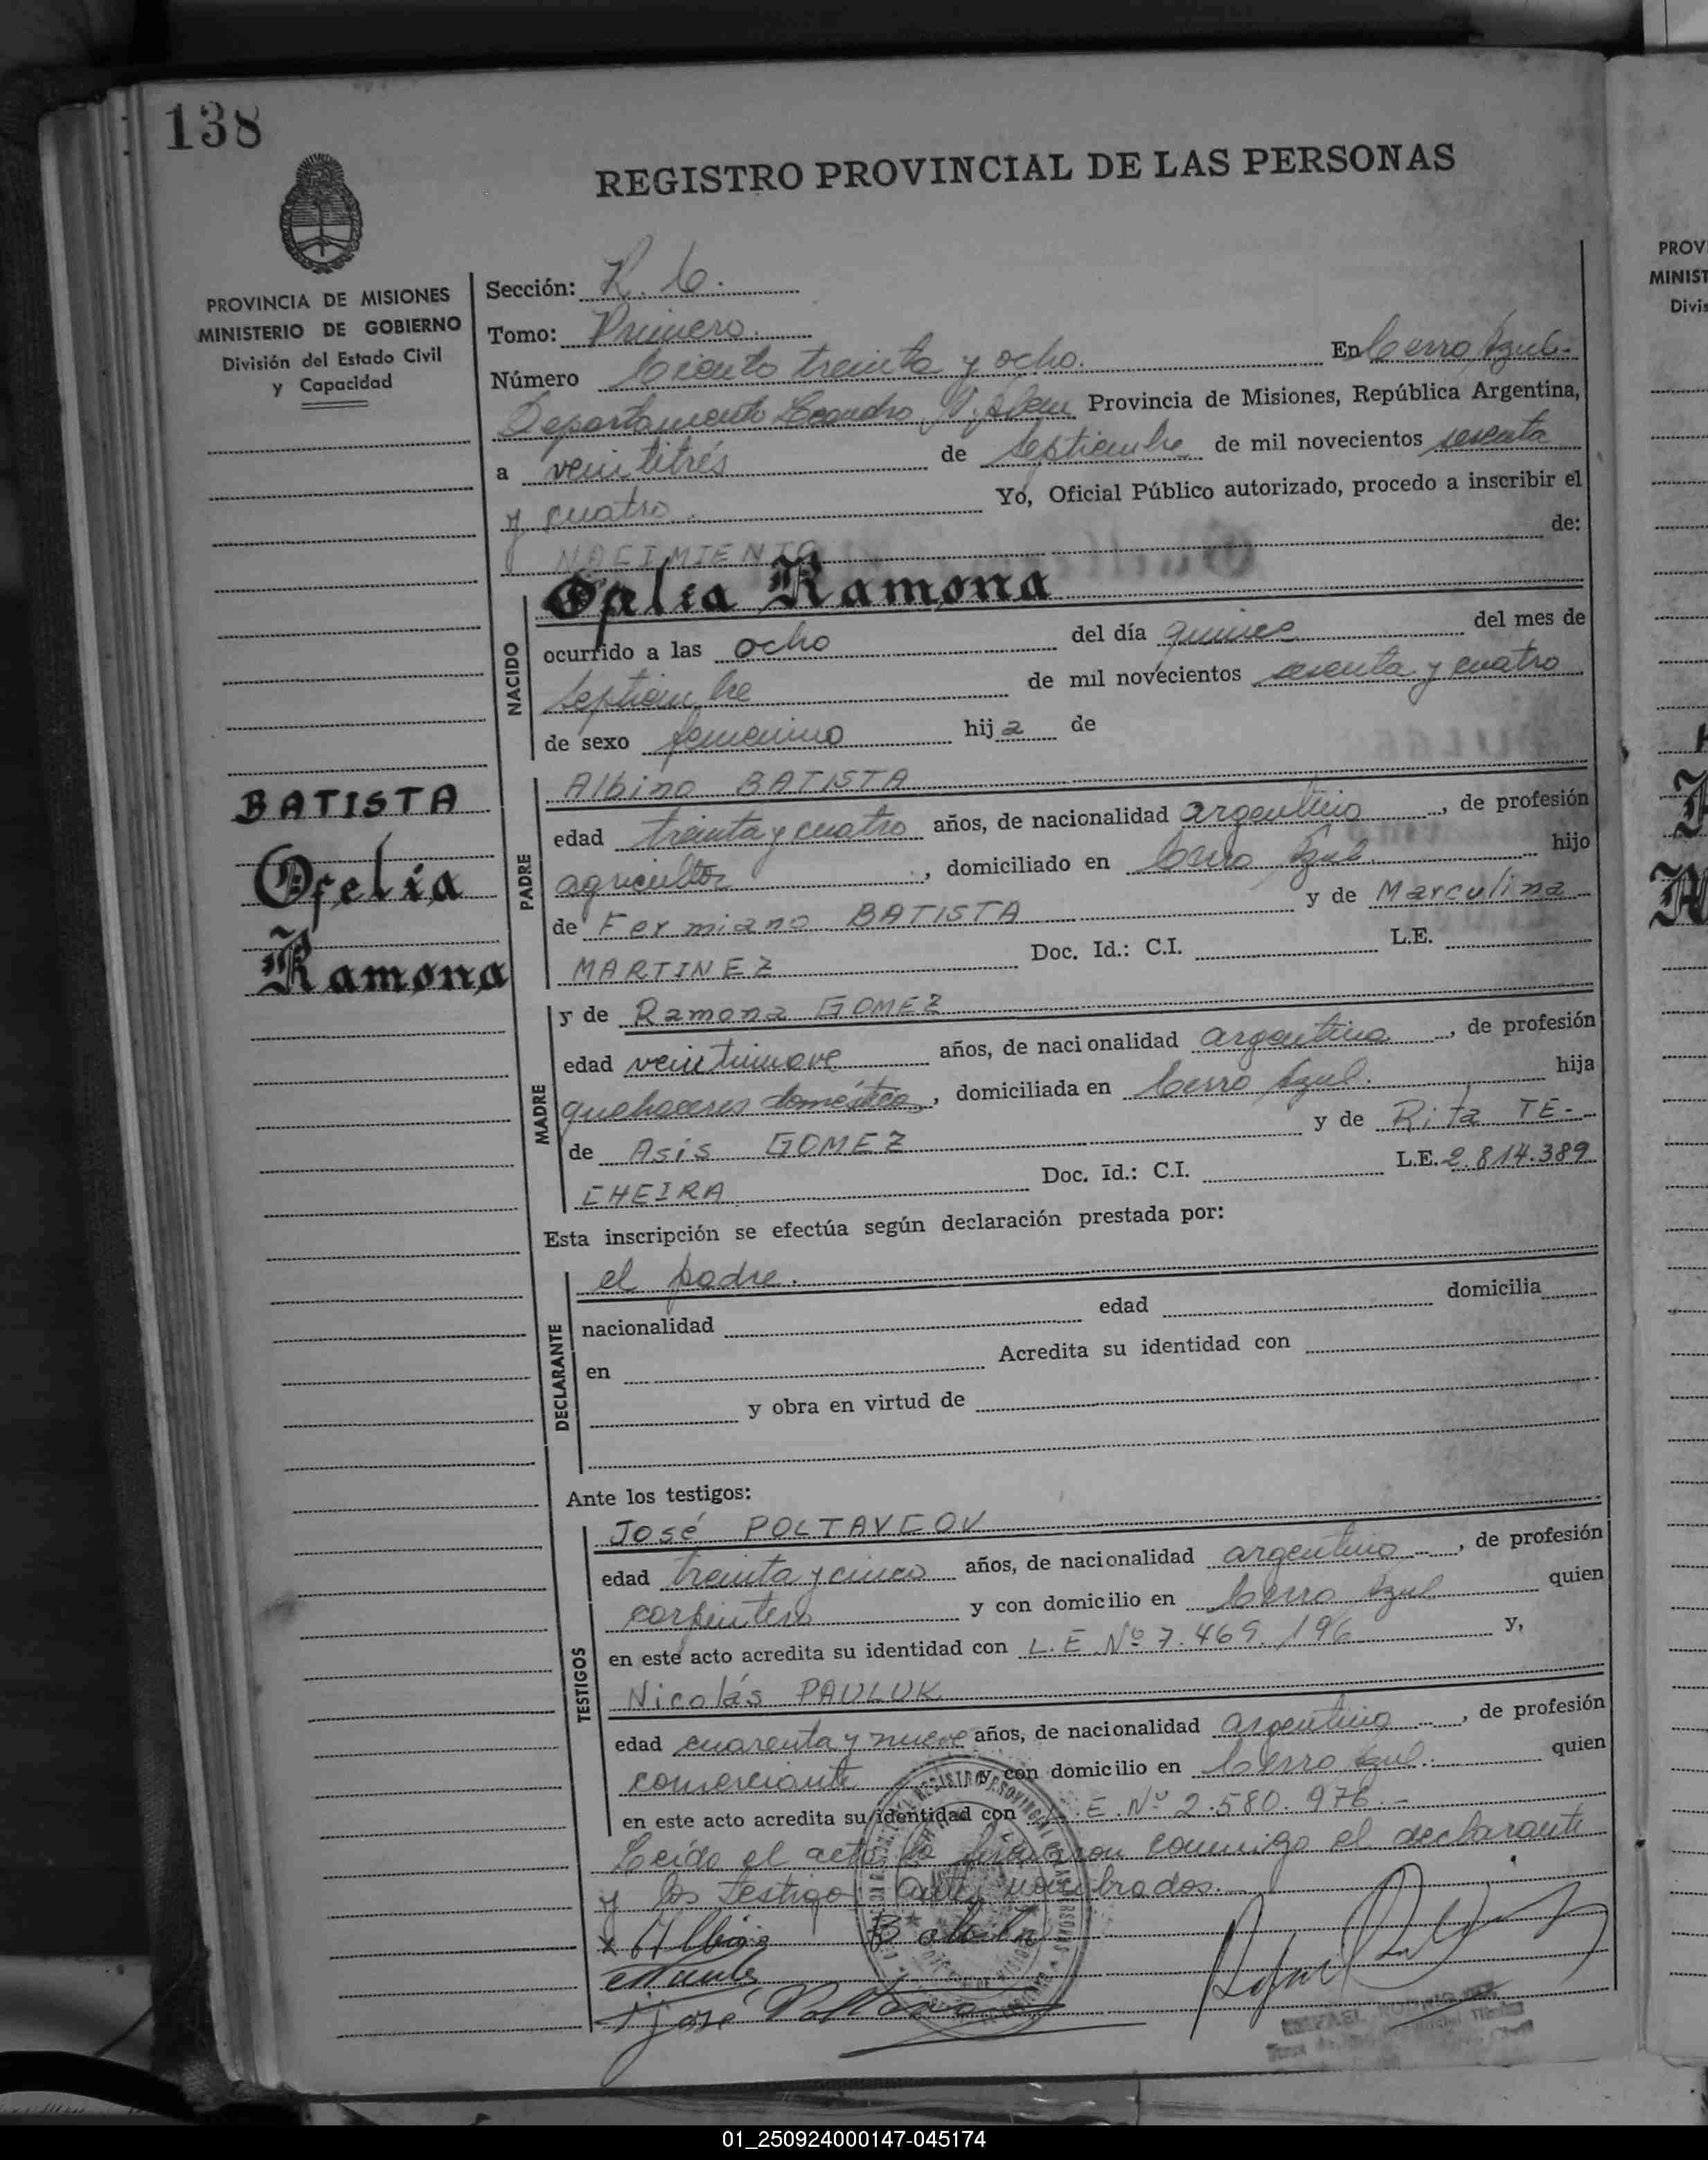 138
REGISTRO PROVINCIAL DE LAS PERSONAS
PROVINCIA DE MISIONES
MINISTERIO DE GOBIERNO
División del Estado Civil
y Capacidad
Sección: R. C.
Tomo: Primero.
Número Ciento treinta y ocho. En Cerro Azul.-
Departamento Leandro N. Alem Provincia de Misiones, República Argentina,
a veintitrés de septiembre de mil novecientos sesenta
y cuatro. Yo, Oficial Público autorizado, procedo a inscribir el
NACIMIENTO de:
NACIDO
Ofelia Ramona
ocurrido a las ocho del día quince del mes de
septiembre de mil novecientos sesenta y cuatro
de sexo femenino hija de
BATISTA
Ofelia
Ramona
PADRE
Albino BATISTA
edad treinta y cuatro años, de nacionalidad argentino, de profesión
agricultor, domiciliado en Cerro Azul hijo
de Fermiano BATISTA y de Marculina
MARTINEZ Doc. Id.: C.I. L.E.
MADRE
y de Ramona GOMEZ
edad veintinueve años, de nacionalidad argentina, de profesión
quehaceres domésticos, domiciliada en Cerro Azul. hija
de Asís GOMEZ y de Rita TE-
CHEIRA Doc. Id.: C.I. L.E. 2.814.389
Esta inscripción se efectúa según declaración prestada por:
DECLARANTE
el padre.
nacionalidad edad domicilia
en Acredita su identidad con
y obra en virtud de
Ante los testigos:
TESTIGOS
José POLTAVCOV
edad treinta y cinco años, de nacionalidad argentino, de profesión
carpintero y con domicilio en Cerro Azul quien
en este acto acredita su identidad con L.E Nº 7.469.196 y,
Nicolás PAULUK
edad cuarenta y nueve años, de nacionalidad argentino, de profesión
comerciante y con domicilio en Cerro Azul. quien
en este acto acredita su identidad con L.E. Nº 2.580.976.-
Leído el acta, la firmaron conmigo el declarante
y los testigos antes nombrados.
x Albino Batista
José
PROV
MINIST
Divis
01_250924000147-045174